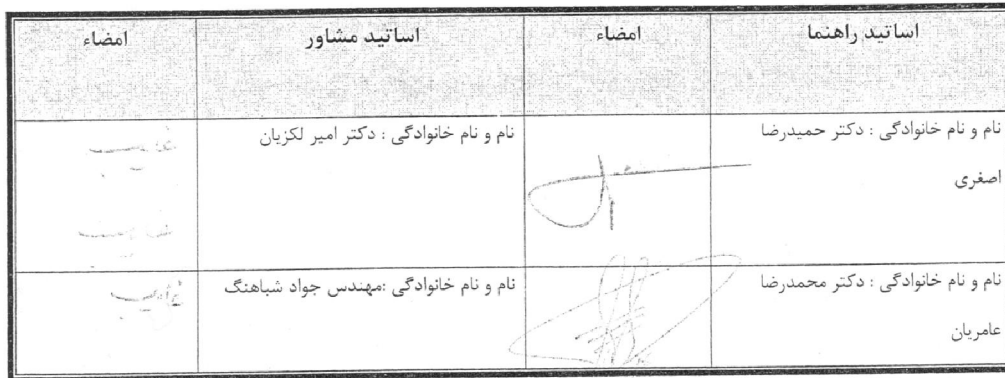 اساتید راهنما
امضاء
اساتید مشاور
امضاء
نام و نام خانوادگی : دکتر حمیدرضا
اصغری
نام و نام خانوادگی : دکتر امیر لکزیان
نام و نام خانوادگی : دکتر محمدرضا
عامریان
نام و نام خانوادگی :مهندس جواد شباهنگ